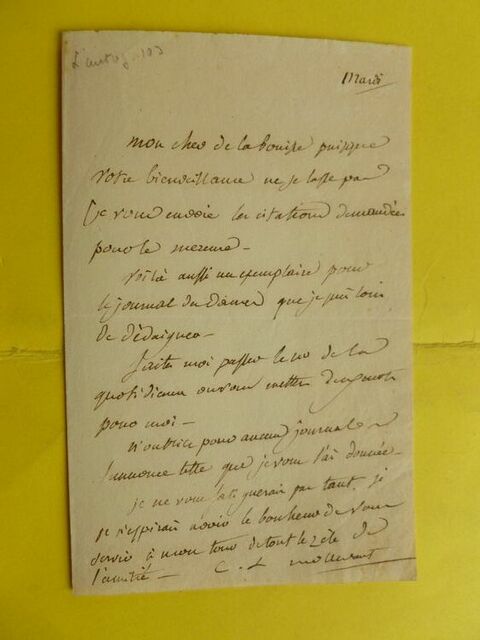 Mardi
mon cher de la Bouisse puisque
votre bienveillance ne se lasse pas
je vous envoie les citations demandées
pour le mercure -
Voilà aussi un exemplaire pour
le journal des Dames que je suis loin
de dédaigner -
faites moi passer le no de la
quotidienne ou vous mettrez
pour moi -
n'oubliez pour aucun journal
l'annonce telle que je vous l'ai donnée -
je ne vous fatiguerais pas tant si
je n'espérais avoir le bonheur de vous
servir à mon tour de tout le zèle de
l'amitié - C. L. mollevaut